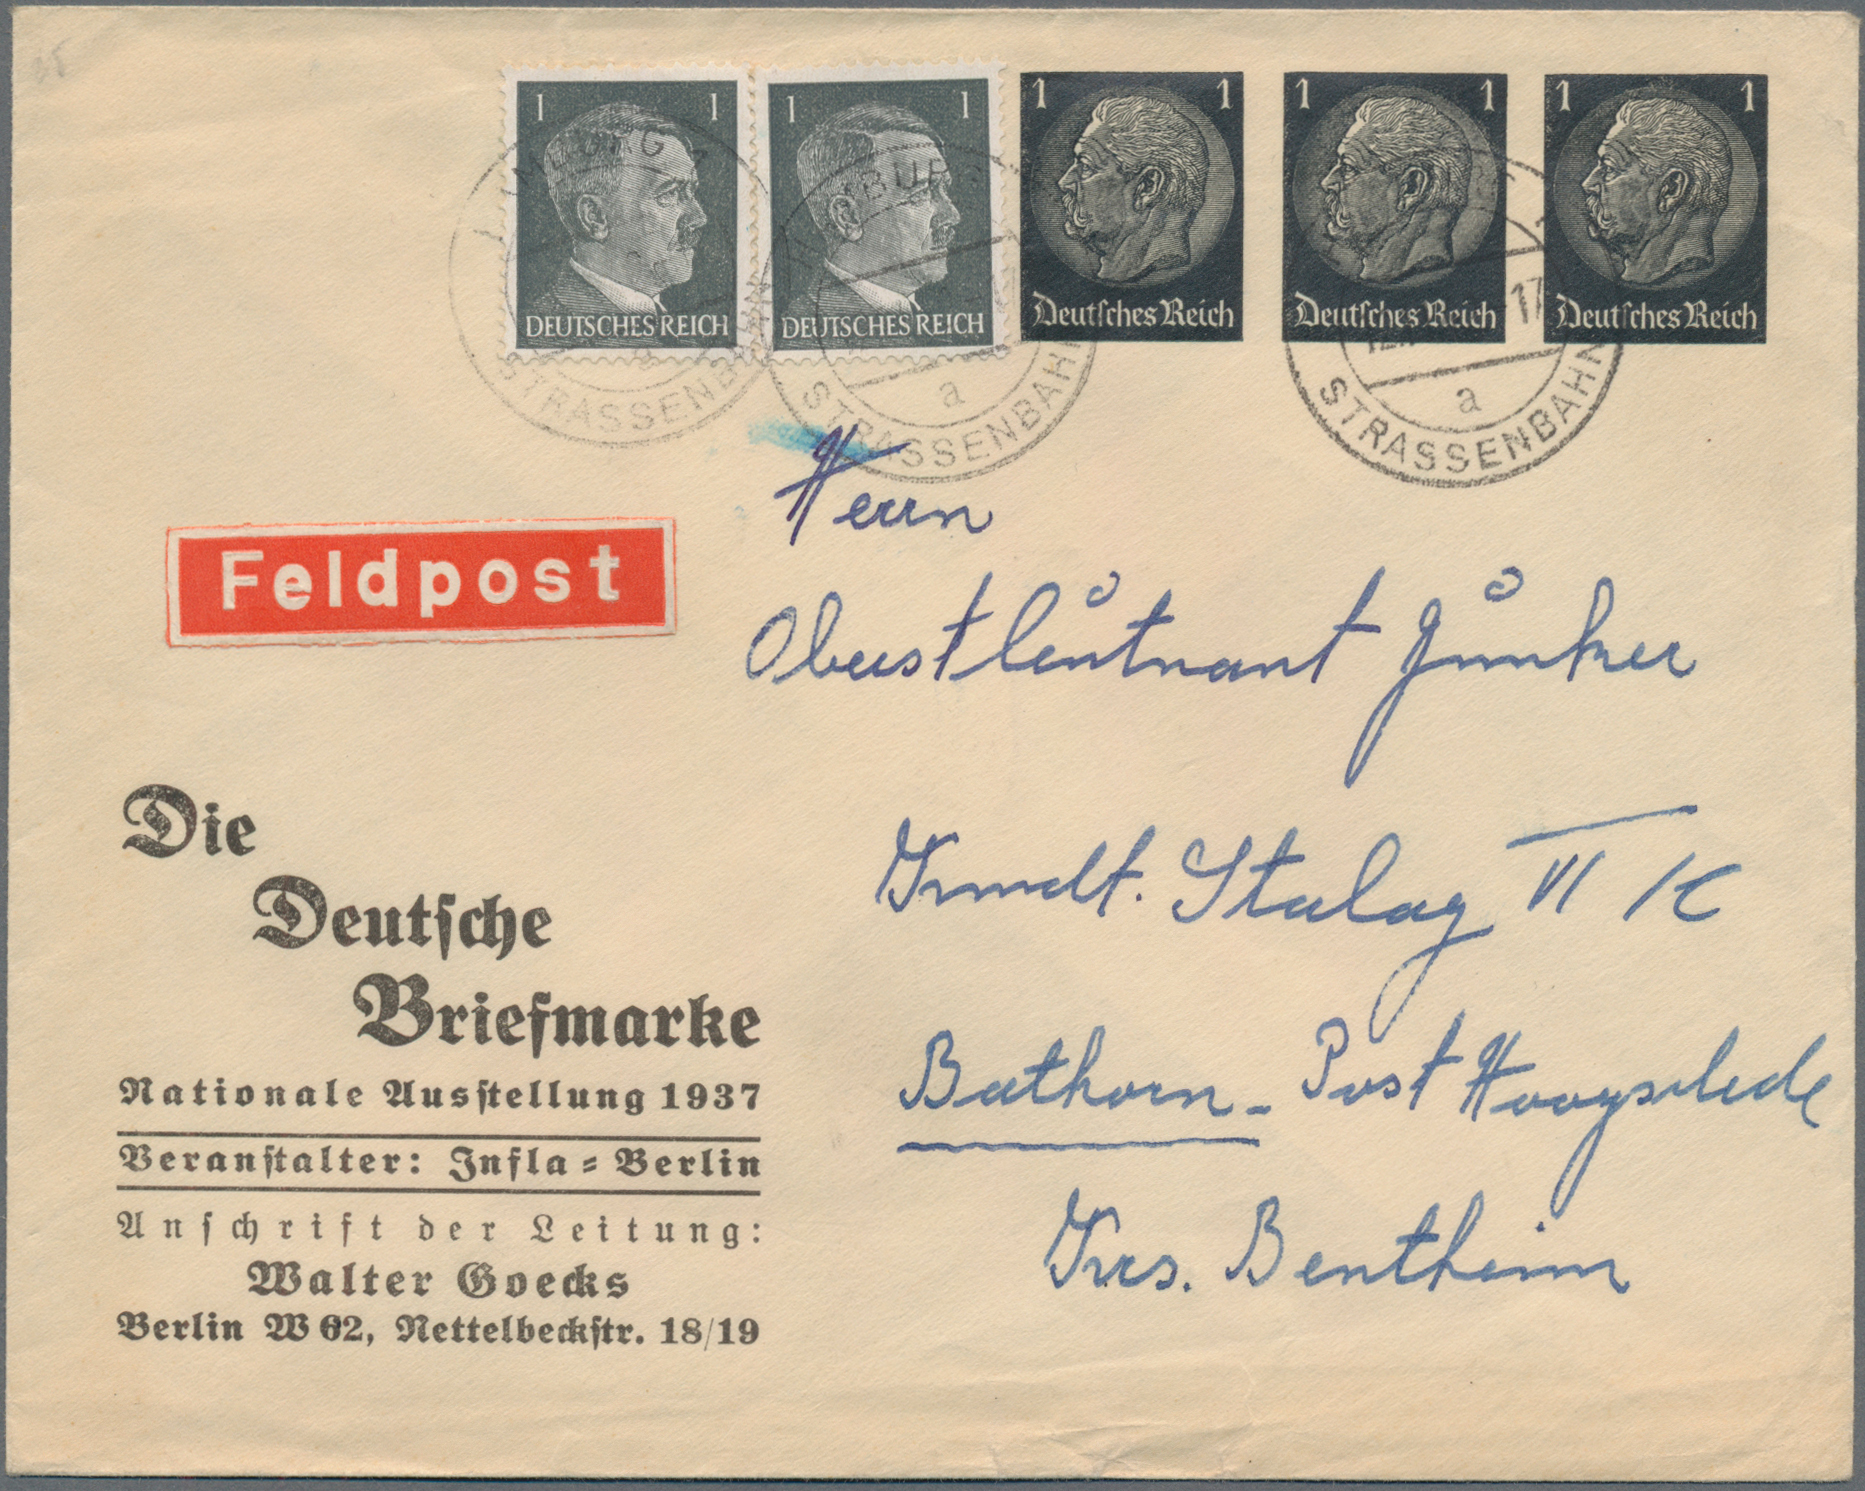 1 1
DEUTSCHES REICH
1 1
DEUTSCHES REICH
1 1
Deutſches Reich
1 1
Deutſches Reich
1 1
Deutſches Reich
STRASSENBAHN
a
STRASSENBAHN
a
STRASSENBAHN
17
Feldpost
Herrn
Oberstleutnant Junker
Kmdt. Stalag VI K
Bathorn - Post Hoogstede
Krs. Bentheim
Die
Deutſche
Briefmarke
Nationale Ausſtellung 1937
Veranſtalter: Infla-Berlin
Anſchrift der Leitung:
Walter Goecks
Berlin W 62, Nettelbeckſtr. 18/19